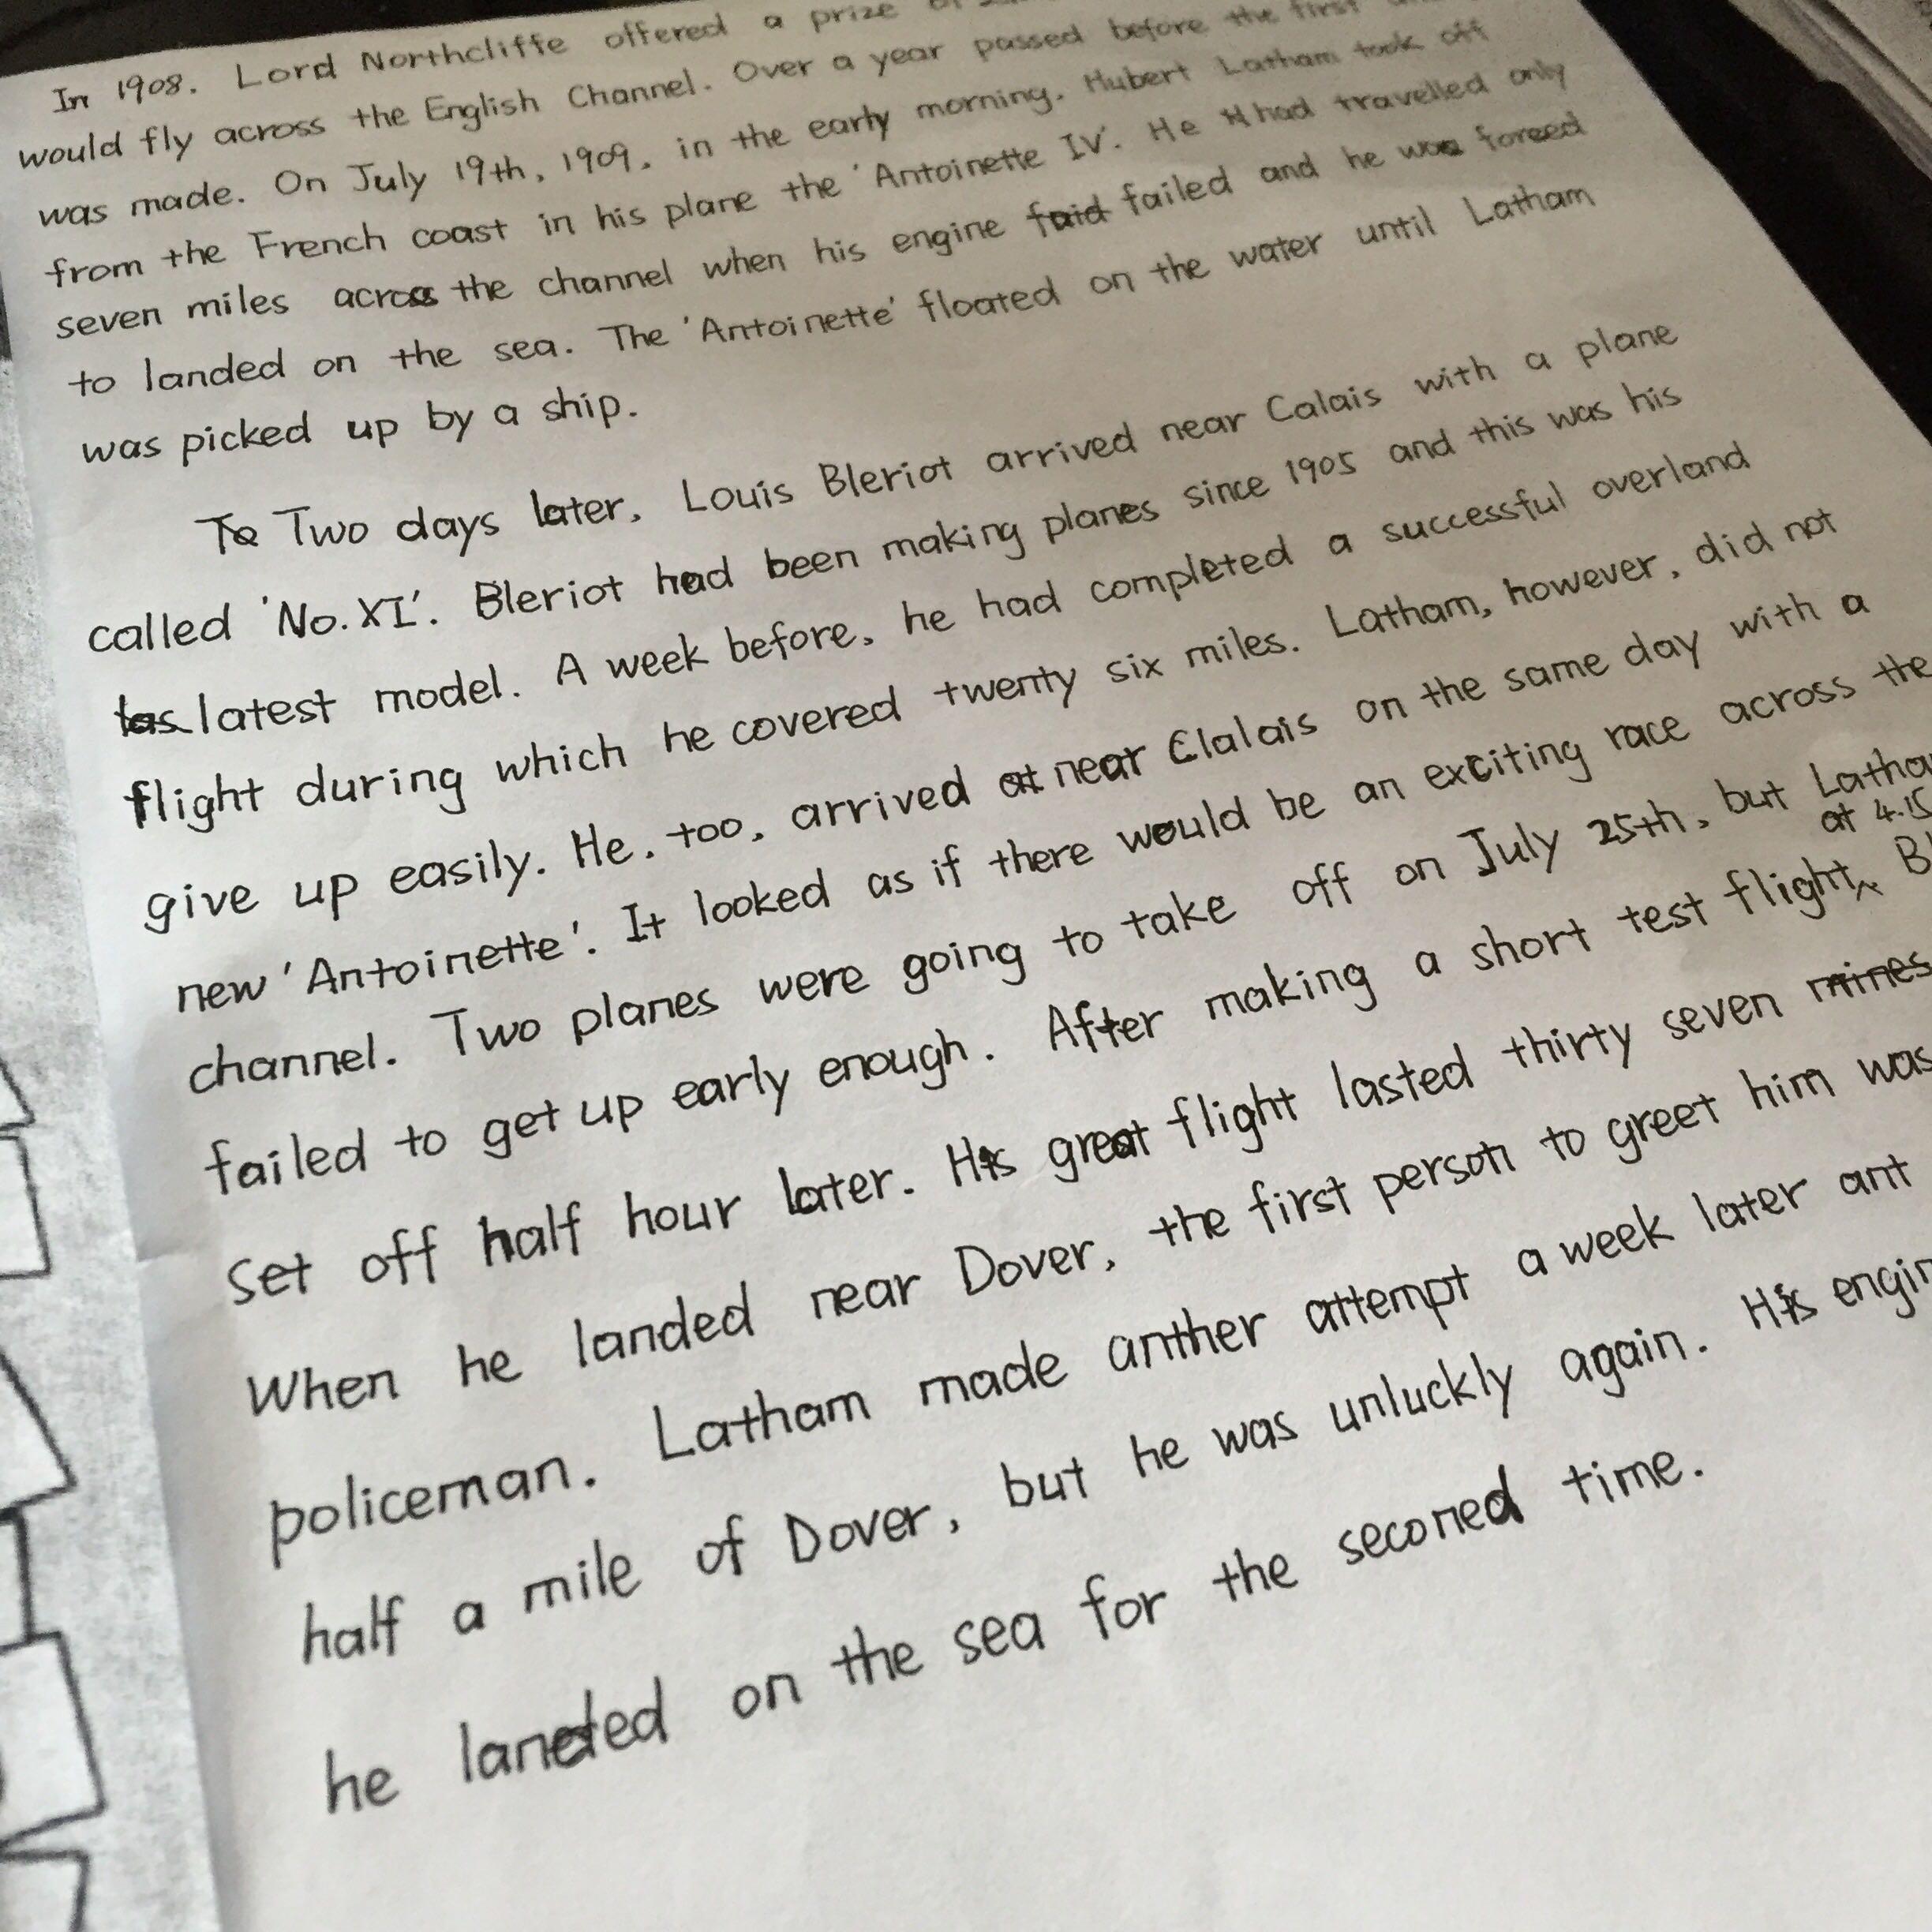 In 1908. Lord Northcliffe offered a prize of
would fly across the English Channel. Over a year passed before the first
was made. On July 19th, 1909, in the early morning. Hubert Latham took off
from the French coast in his plane the 'Antoinette IV'. He had travelled only
seven miles across the channel when his engine faid failed and he was forced
to landed on the sea. The 'Antoinette' floated on the water until Latham
was picked up by a ship.
To Two days later, Louis Bleriot arrived near Calais with a plane
called 'No.XI'. Bleriot had been making planes since 1905 and this was his
las latest model. A week before, he had completed a successful overland
flight during which he covered twenty six miles. Latham, however, did not
give up easily. He, too, arrived at near Clalais on the same day with a
new 'Antoinette'. It looked as if there would be an exciting race across the
channel. Two planes were going to take off on July 25th, but Latha
failed to get up early enough. After making a short test flight at 4.15 Bl
set off half hour later. His great flight lasted thirty seven mines
When he landed near Dover, the first person to greet him was
policeman. Latham made anther attempt a week later ant
half a mile of Dover, but he was unluckly again. His engin
he landed on the sea for the seconed time.